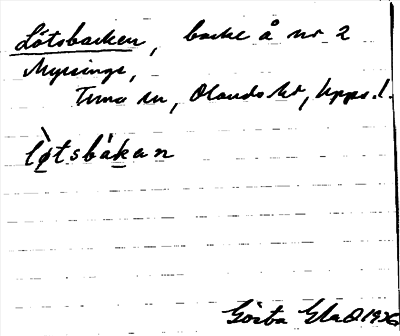 Lötsbacken, backe å nr 2
Myssinge,
Tuna sn, Olands hd, Upps. l.
lø̀tsbákan
Gösta Glad 1936